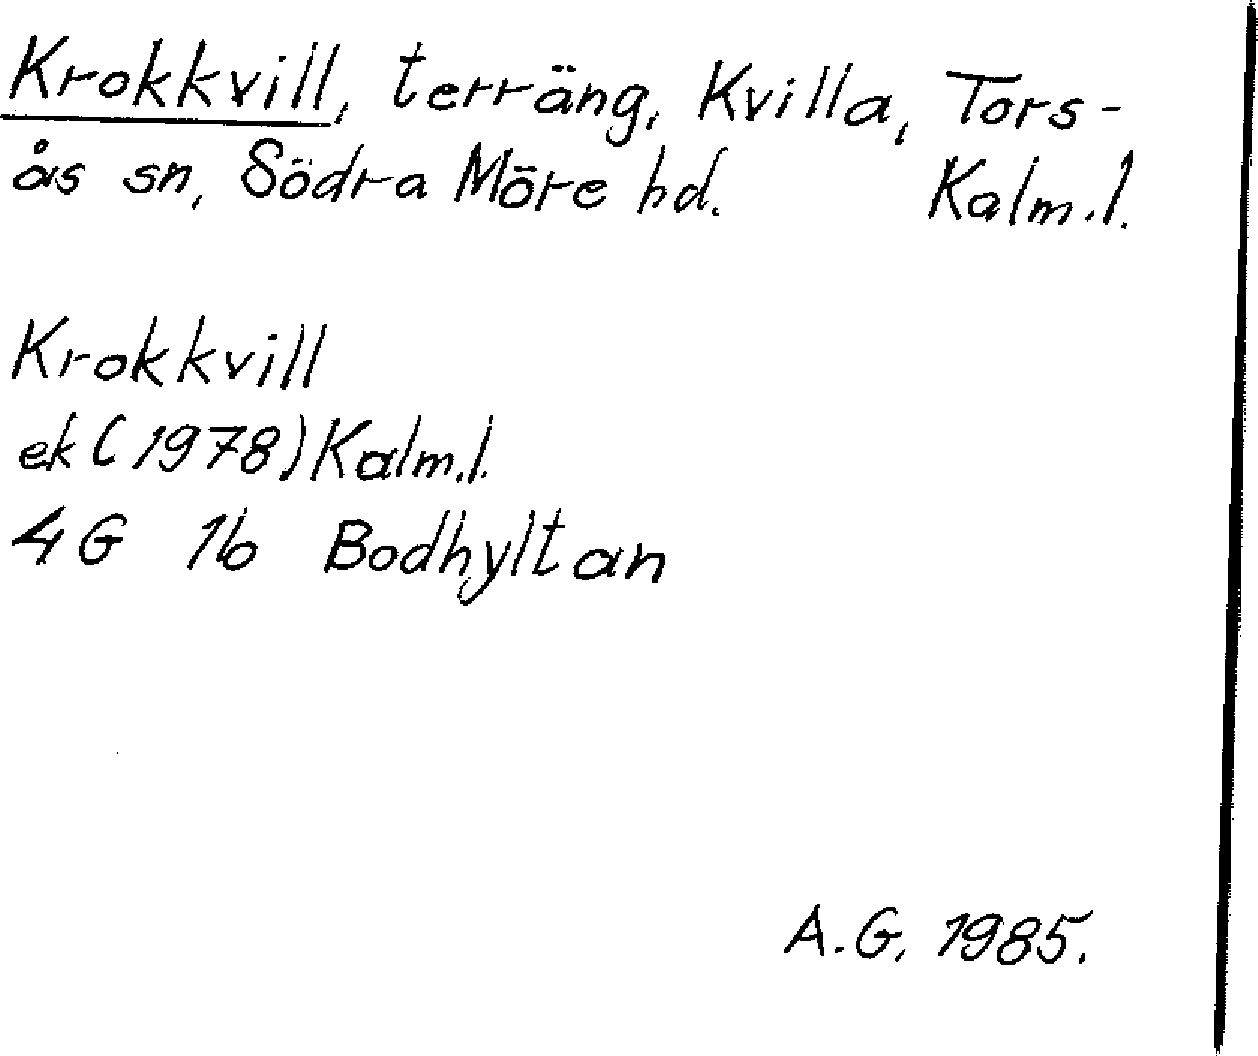 Krokkvill, terräng, Kvilla, Tors-
ås sn, Södra Möre hd. Kalm.l.
Krokkvill
ek (1978) Kalm.l.
4G 1b Bodhyltan
A.G. 1985.